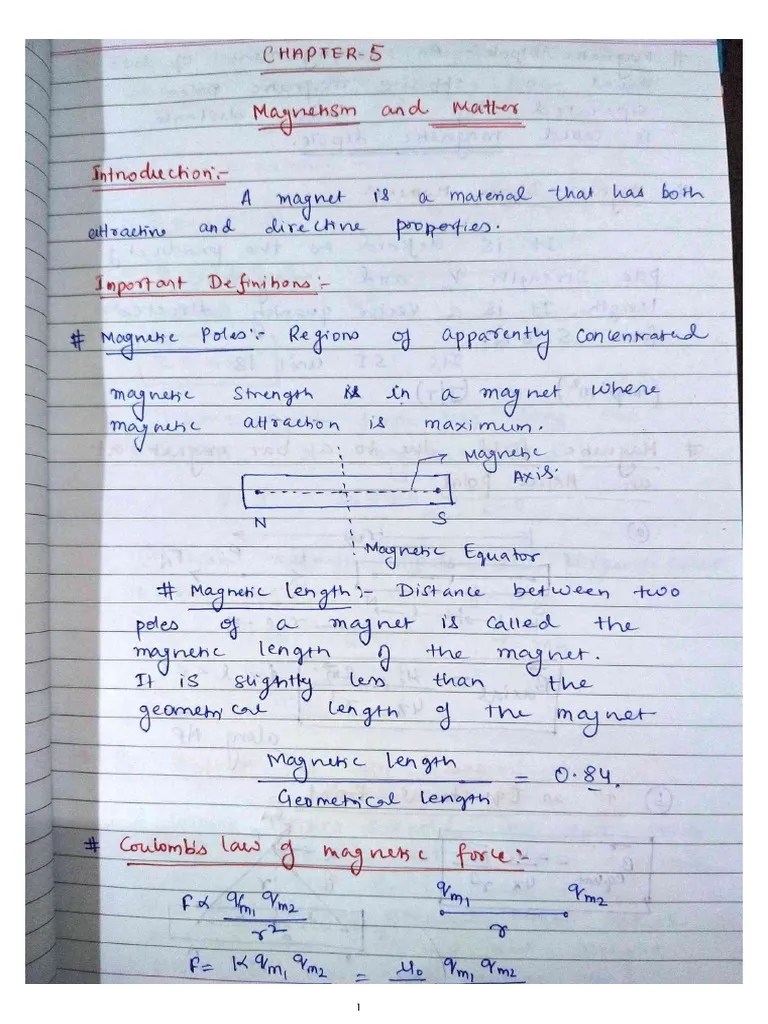 CHAPTER-5
Magnetism and Matter
Introduction:-
A magnet is a material that has both
attractive and directive properties.
Important Definitions:-
# Magnetic Poles:- Regions of apparently concentrated
magnetic strength is in a magnet where
magnetic attraction is maximum.
Magnetic
Axis.
N S
Magnetic Equator
# Magnetic length:- Distance between two
poles of a magnet is called the
magnetic length of the magnet.
It is slightly less than the
geometrical length of the magnet
Magnetic length
= 0.84.
Geometrical length
# Coulomb's law of magnetic force:-
F∝ qm1 qm2
r²
qm1 qm2
r
F= K qm1 qm2 = μ0 qm1 qm2
1